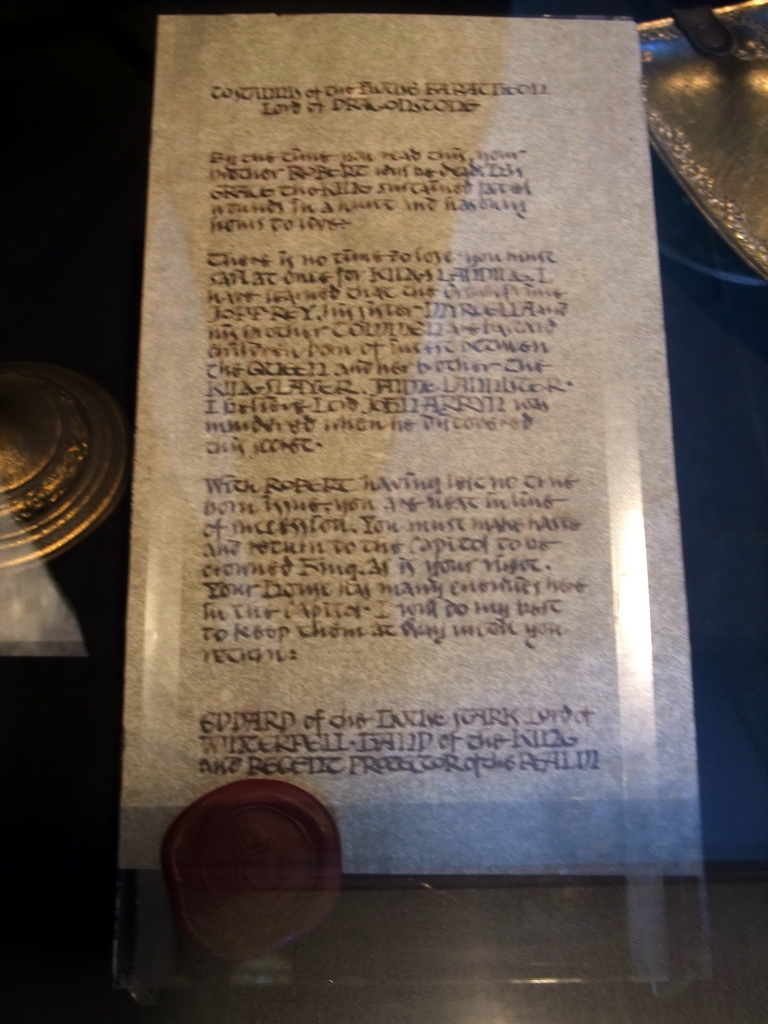 To STANNIS of the HOUSE BARATHEON
Lord of DRAGONSTONE
By the time you read this, your
brother ROBERT will be dead. His
GRACE the KING sustained fatal
wounds in a hunt and has only
hours to live.
There is no time to lose. you must
sail at once for KINGS LANDING. I
have learned that the Crown prince
JOFFREY, his sister MYRCELLA and
his brother TOMMEN are bastard
children born of incest between
the QUEEN and her brother the
KINGSLAYER. JAIME LANNISTER.
I believe Lord JON ARRYN was
murdered when he discovered
this secret.
With ROBERT having left no true
born issue, you are next in line
of succession. You must make haste
and return to the Capitol to be
crowned King. As is your right.
Your House has many enemies here
in the Capitol. I will do my best
to keep them at bay until you
return:
EDDARD of the HOUSE STARK Lord of
WINTERFELL. HAND of the KING
and REGENT PROTECTOR of the REALM